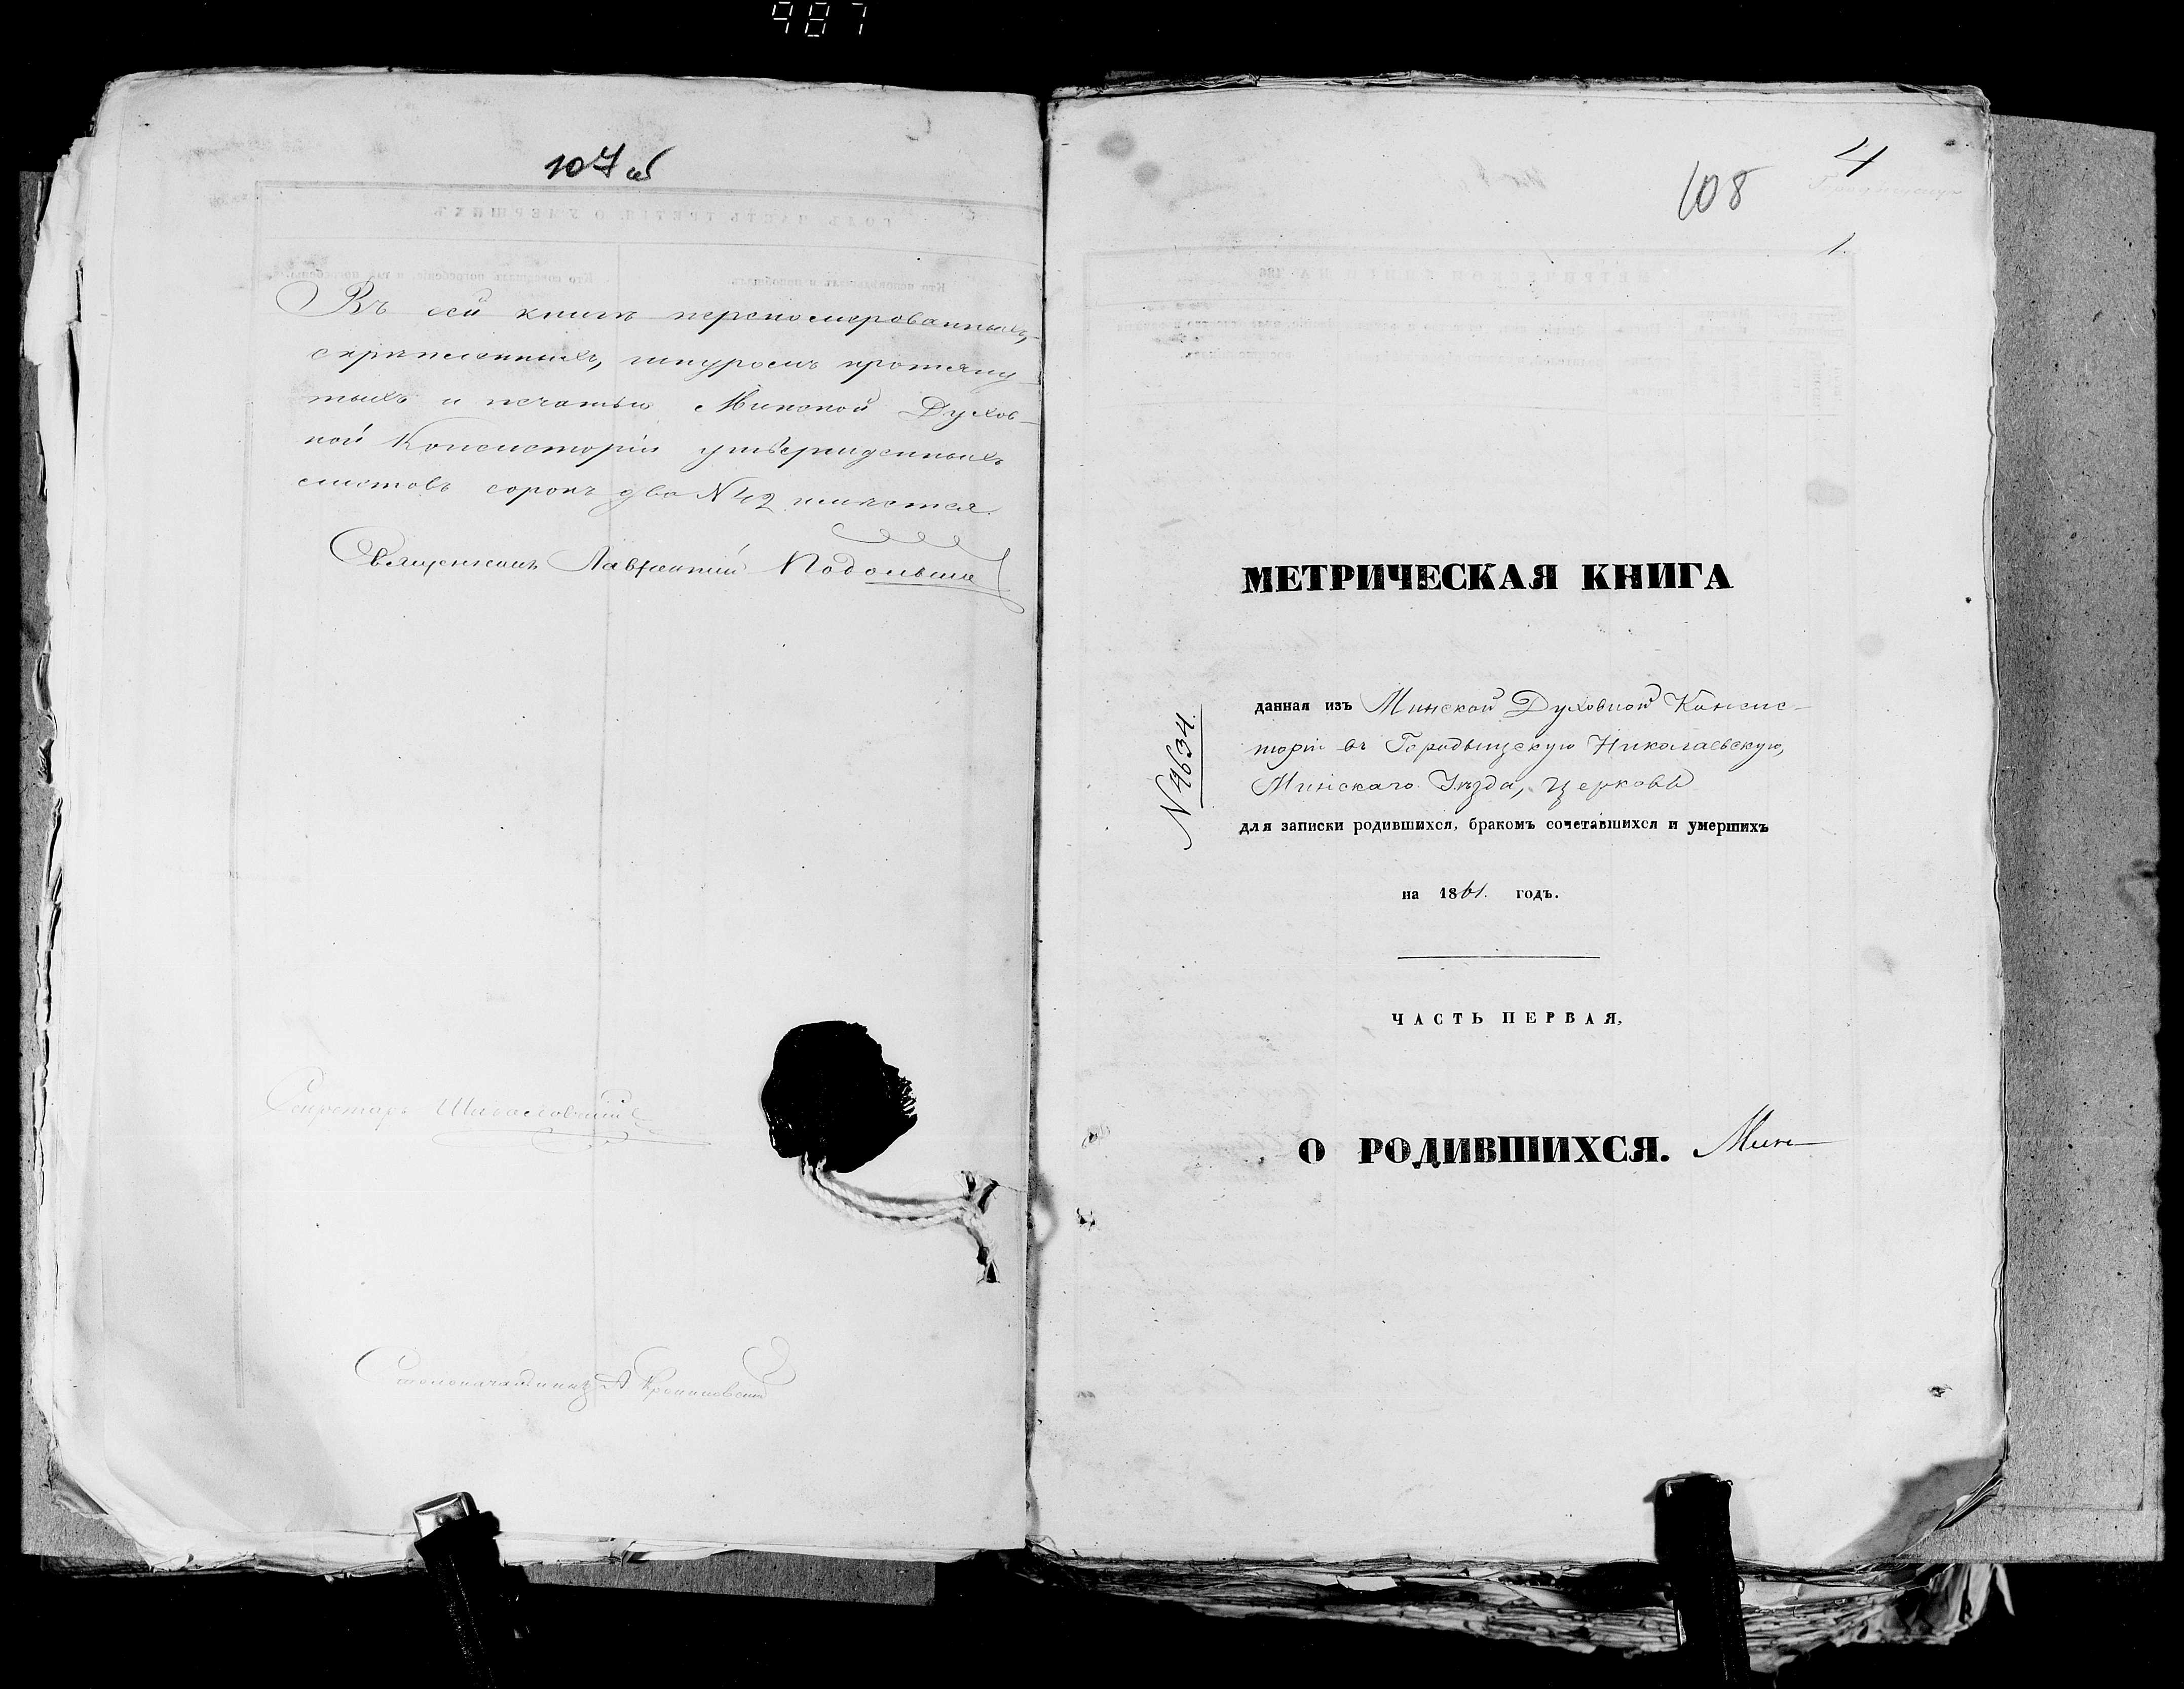 987
107 об
Въ сей книгѣ перепомерованныхъ,
скрѣпленныхъ, шнуромъ протяну-
тыхъ и печатью Минской Духов-
ной Консисторіи утвержденныхъ
листовъ сорокъ два №42 имѣется.
Священникъ Лаврентий
Секретарь
Столоначальникъ А.
4
108
1.
МЕТРИЧЕСКАЯ КНИГА
данная изъ Минской Духовной Консис-
торіи въ Городыщскую Николаевскую,
Минскаго Уѣзда, церковь
для записки родившихся, бракомъ сочетавшихся и умершихъ
N 4634.
на 1861. годъ.
ЧАСТЬ ПЕРВАЯ,
О РОДИВШИХСЯ. Мин